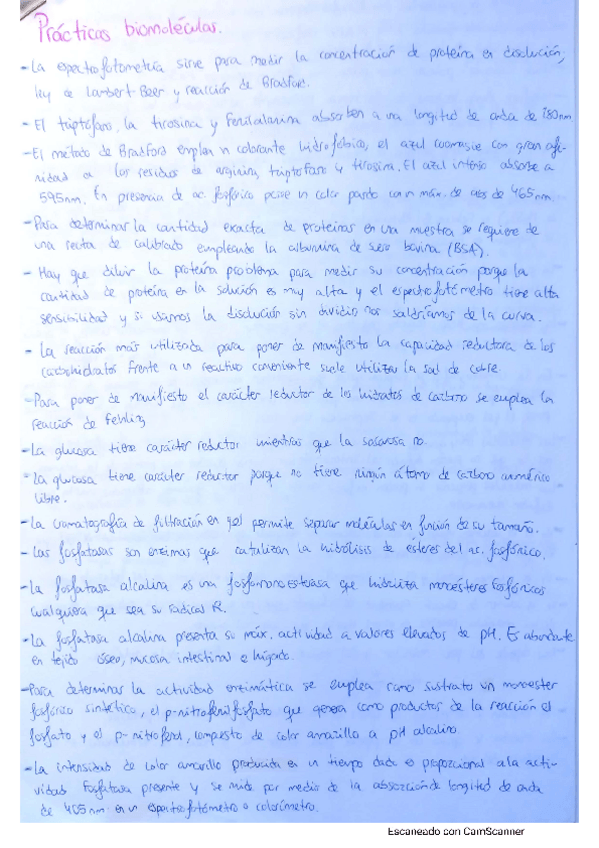 Prácticas biomoléculas.
- La espectrofotometría sirve para medir la concentración de proteína en disolución,
ley de Lambert Beer y reacción de Bradford.
- El triptófano, la tirosina y Fenilalanina absorben a una longitud de onda de 280nm
- El método de Bradford emplea un colorante hidrofóbico, el azul coomasie con gran afi-
nidad a los residuos de arginina, triptófano y tirosina. El azul intenso absorbe a
595nm. En presencia de ac. fosfórico un color pardo con un máx. de abs de 465nm
- Para determinar la cantidad exacta de proteínas en una muestra se requiere de
una recta de calibrado empleando la albumina de suero bovina (BSA).
- Hay que diluir la proteína problema para medir su concentración porque la
cantidad de proteína en la solución es muy alta y el espectrofotómetro tiene alta
sensibilidad y si usamos la disolución sin dividir nos saldríamos de la curva.
- La reacción más utilizada para poner de manifiesto la capacidad reductora de los
carbohidratos frente a un reactivo conveniente suele utilizar la sal de cobre.
- Para poner de manifiesto el carácter reductor de los hidratos de carbono se emplea la
reacción de Fehling
- La glucosa tiene carácter reductor mientras que la sacarosa no.
- La glucosa tiene carácter reductor porque no tiene ningún átomo de carbono anomérico
libre.
- La cromatografía de filtración en gel permite separar moléculas en función de su tamaño.
- Las fosfatasas son enzimas que catalizan la hidrólisis de ésteres del ac. fosfórico.
- La fosfatasa alcalina es una fosfomonoesterasa que hidroliza monoésteres fosfóricos
cualquiera que sea su radical R.
- La fosfatasa alcalina presenta su máx. actividad a valores elevados de pH. Es abundante
en tejido óseo, mucosa intestinal e hígado.
- Para determinar la actividad enzimática se emplea como sustrato un monoester
fosfórico sintético, el p-nitrofenilfosfato que genera como productos de la reacción el
fosfato y el p-nitrofenol, compuesto de color amarillo a pH alcalino.
- La intensidad de color amarillo producida en un tiempo dado es proporcional a la acti-
vidad Fosfatasa presente y se mide por medio de la absorción de longitud de onda
de 405nm en un espectrofotómetro o colorímetro.
Escaneado con CamScanner